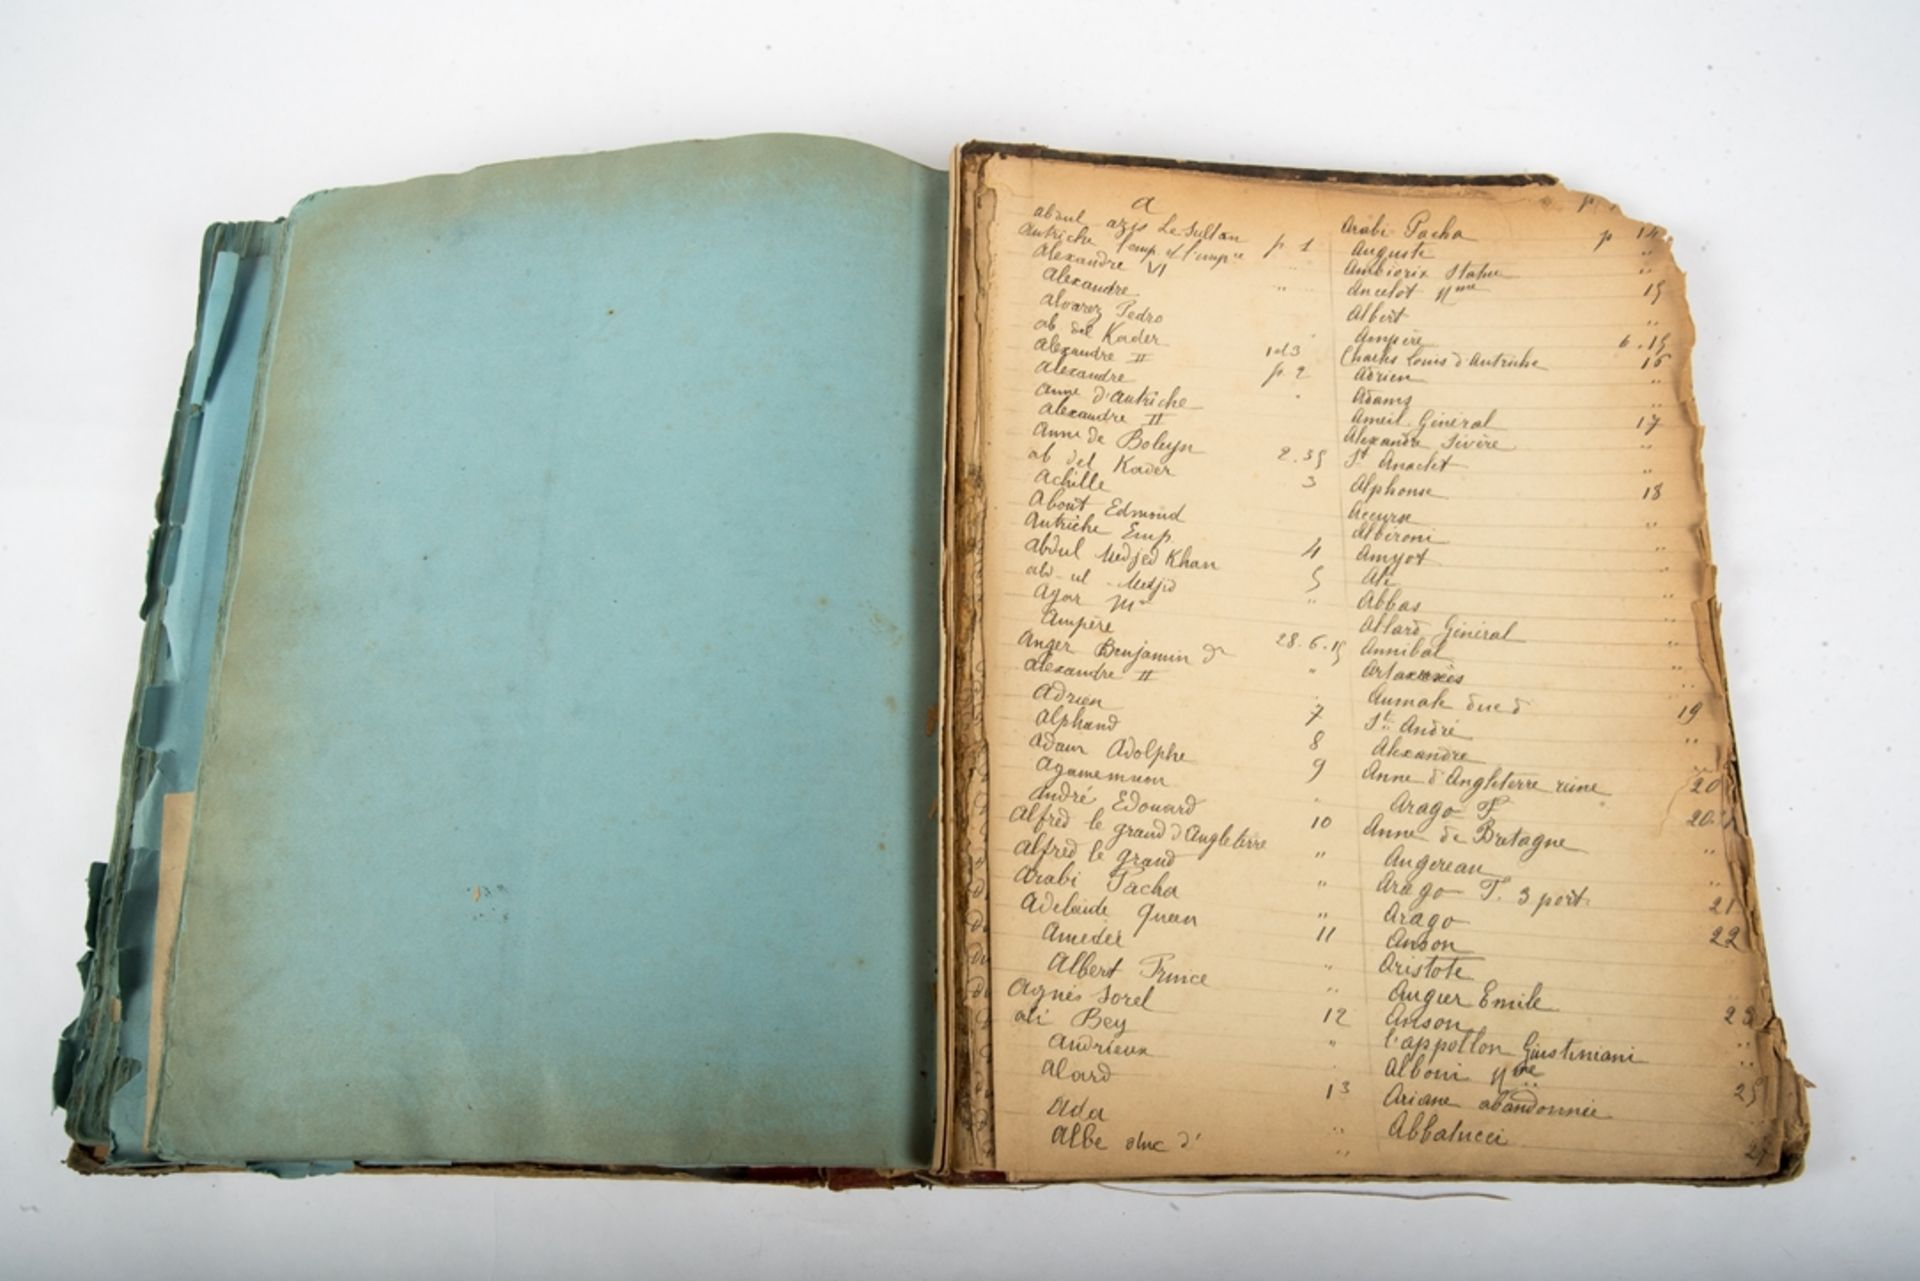 a
abdul azis Le Sultan p. 1
Autriche l'emp et l'impce "
Alexandre VI "
Alexandre
Alvarez Pedro
ab del Kader "
Alexandre II 1 et 3
Alexandre p. 2
Anne d'Autriche "
Alexandre II
Anne de Boleyn 2. 35
ab del Kader 3
Achille
About Edmond
Autriche Emp. 4
abdul Medjed Khan 5
abd-ul-Medjid "
Agar Me
Ampère 28. 6. 15
Anger Benjamin de "
Alexandre II "
Adrien 7
Alphand 8
Adam Adolphe 9
Agamemnon "
André Edouard 10
Alfred le grand d'Angleterre "
Alfred le grand "
Arabi Pacha "
Adelaide Queen 11
Amedée "
Albert Prince "
Agnès Sorel 12
Ali Bey "
Andrieux "
Alard 13
Ada "
Albe duc d' "
p.
Arabi Pacha p 14
Auguste "
Ambiorix Statue "
Ancelot Mme 15
Albert "
Ampère 6. 15
Charles Louis d'Autriche 16
Adrien "
Adams "
Ameil Général 17
Alexandre Sévère "
St Anaclet "
Alphonse 18
Accurse "
Alberoni "
Amyot "
Ali "
Abbas "
Allard Général "
Annibal "
Artaxerxès "
Aumale duc d 19
St André "
Alexandre "
Anne d'Angleterre reine 20
Arago F. 20.
Anne de Bretagne "
Augereau "
Arago F. 3 port. 21
Arago 22
Anson
Aristote
Augier Emile 23
Anson "
l'appollon Giustiniani "
Alboni Mme 25
Ariane abandonnée "
Abbatucci 27